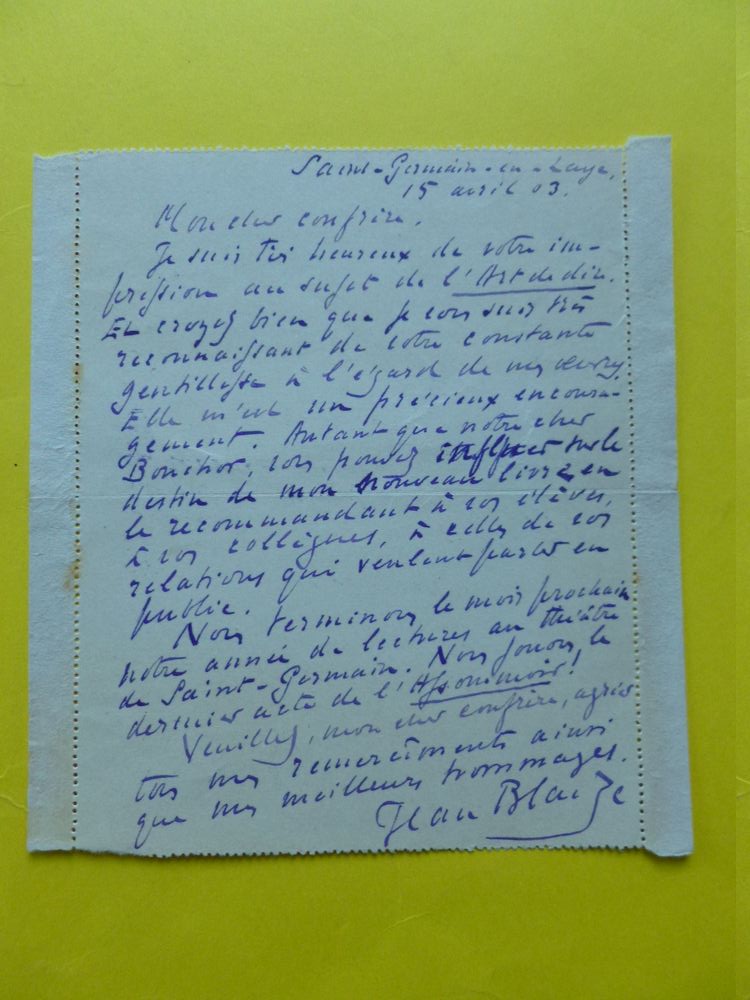 Saint-Germain-en-Laye,
15 avril 03.
Mon cher confrère.
Je suis très heureux de votre im-
pression au sujet de l'Art de dire.
Et croyez bien que je vous suis très
reconnaissant de votre constante
gentillesse à l'égard de mes œuvres.
Elle m'est un précieux encoura-
gement. Autant que notre cher
Bouchor, vous pouvez influer sur le
destin de mon nouveau livre en
le recommandant à vos élèves,
à vos collègues, à celles de vos
relations qui veulent parler en
public.
Nous terminons le mois prochain
notre année de lectures au théâtre
de Saint-Germain. Nous jouons le
dernier acte de l'Assommoir!
Veuillez, mon cher confrère, agréer
tous mes remercîments ainsi
que mes meilleurs hommages.
Jean Blaize